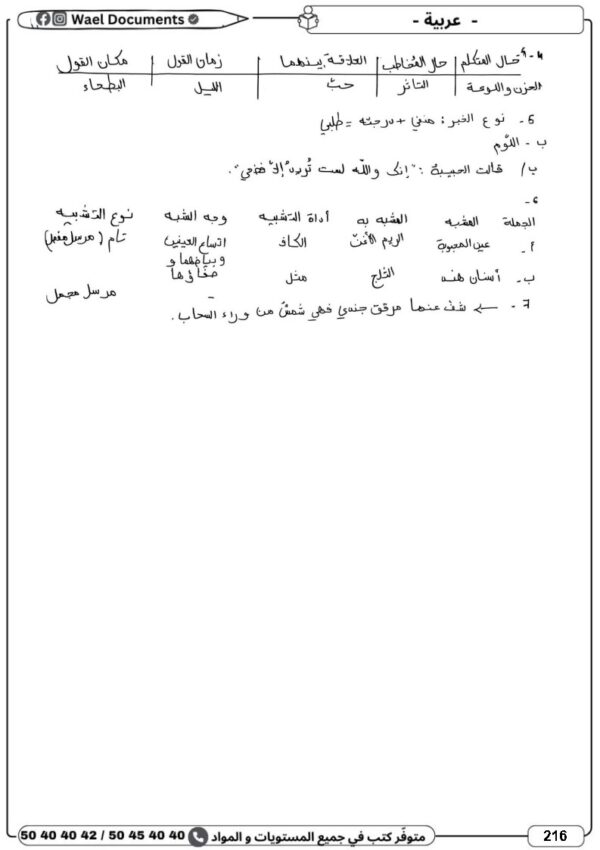 Wael Documents
- عربية -
4 - أ حال المتكلم | حال المخاطب | العلاقة بينهما | زمان القول | مكان القول
الحزن واللوعة | التأثر | حبّ | الليل | البطحاء
5 - نوع الخبر: منفي + درجته = طلبي
ب - اللّوم
ب/ قالت الحبيبة: "إنك والله لست تُريدُ إلاّ فضحي".
6 -
الجملة المشبه المشبه به أداة التشبيه وجه الشبه نوع التشبيه
أ - عين المحبوبة الريم الأغنّ الكاف اتساع العينين وبياضهما و صفاؤها تام (مرسل مفصل)
ب - أسنان هند الثلج مثل - مرسل مجمل
7 - ← شفّ عنها مرقق جندي فهي شمسٌ من وراء السحاب.
50 40 40 42 / 50 45 40 40
متوفّر كتب في جميع المستويات و المواد
216